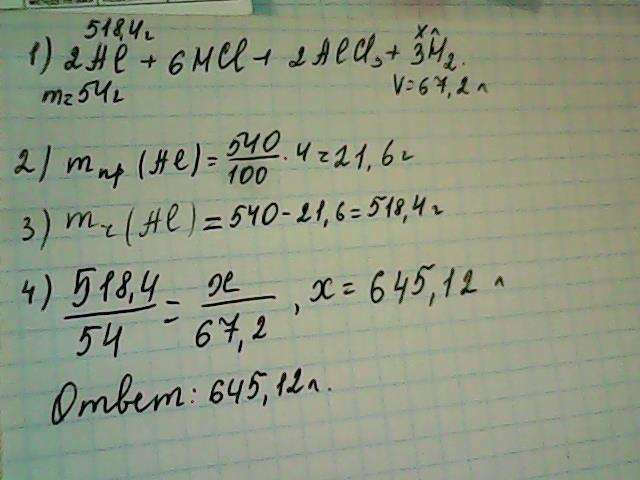 518,4г xл
1) 2Al + 6HCl → 2AlCl₃ + 3H₂.
m=54г V=67,2л
2) mпр (Al) = 540/100 · 4 = 21,6г
3) mч (Al) = 540 - 21,6 = 518,4г
4) 518,4/54 = x/67,2, x = 645,12 л
Ответ: 645,12л.